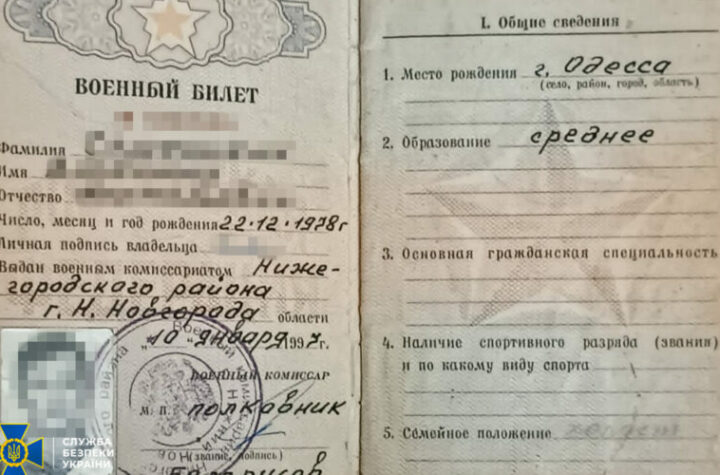 ВОЕННЫЙ БИЛЕТ
Фамилия
Имя
Отчество
Число, месяц и год рождения 22.12.1978г
Личная подпись владельца
Выдан военным комиссариатом Ниже-
городского района
г. Н. Новгорода области
"10" января 1997г.
ВОЕННЫЙ КОМИССАР
М. П. полковник
(звание, подпись)
СЛУЖБА
БЕЗПЕКИ
УКРАЇНИ
I. Общие сведения
1. Место рождения г. Одесса
(село, район, город, область)
2. Образование среднее
3. Основная гражданская специальность
4. Наличие спортивного разряда (звания)
и по какому виду спорта
5. Семейное положение